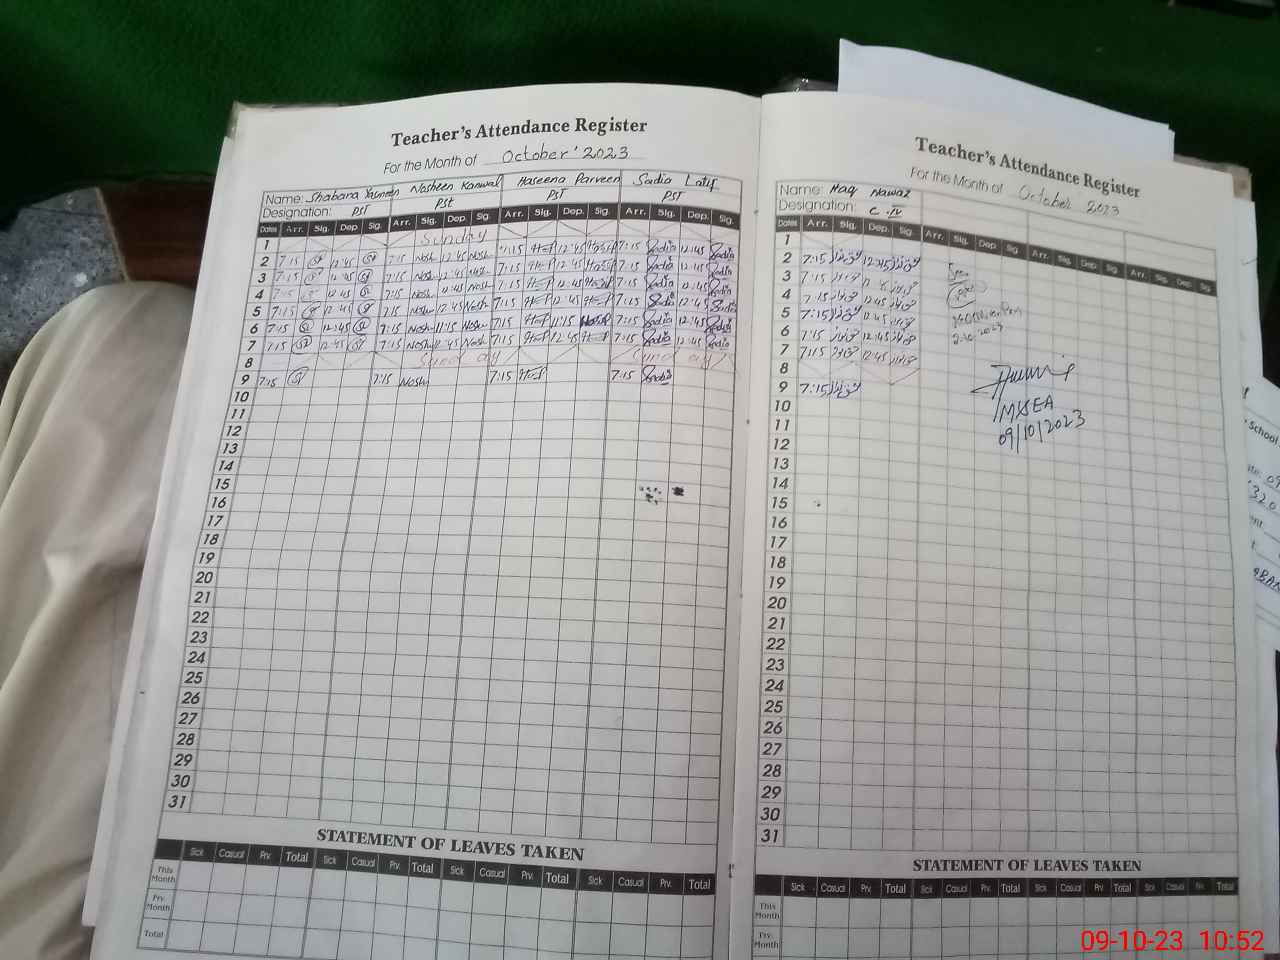 Teacher's Attendance Register
For the Month of October' 2023
Name: Shabana Yasmeen Nosheen Kanwal Haseena Parveen Sadia Latif
Designation: PST PSt PST PST
Dates Arr. Sig. Dep. Sig. Arr. Sig. Dep. Sig. Arr. Sig. Dep. Sig. Arr. Sig. Dep. Sig.
1 Sunday
2 7:15 12:45 7:15 Nosh 12:45 Nosh 7:15 12:45 7:15 Sadia 12:45 Sadia
3 7:15 12:45 7:15 Nosh 12:45 Nosh 7:15 12:45 7:15 Sadia 12:45 Sadia
4 7:15 12:45 7:15 Nosh 12:45 Nosh 7:15 12:45 7:15 Sadia 12:45 Sadia
5 7:15 12:45 7:15 Nosh 12:45 Nosh 7:15 12:45 7:15 Sadia 12:45 Sadia
6 7:15 12:45 7:15 Nosh 11:15 Nosh 7:15 11:15 7:15 Sadia 12:45 Sadia
7 7:15 12:45 7:15 Nosh 12:45 Nosh 7:15 12:45 7:15 Sadia 12:45 Sadia
8 Sunday Sunday
9 7:15 7:15 Nosh 7:15 7:15 Sadia
10
11
12
13
14
15
16
17
18
19
20
21
22
23
24
25
26
27
28
29
30
31
STATEMENT OF LEAVES TAKEN
Sick Casual Prv. Total Sick Casual Prv. Total Sick Casual Prv. Total Sick Casual Prv. Total
This Month
Prv. Month
Total
Teacher's Attendance Register
For the Month of October 2023
Name: Haq Nawaz
Designation: C-IV
Dates Arr. Sig. Dep. Sig. Arr. Sig. Dep. Sig. Arr. Sig. Dep. Sig. Arr. Sig. Dep. Sig.
1
2 7:15 12:45
3 7:15 12:45
4 7:15 12:45
5 7:15 12:45
6 7:15 12:45
7 7:15 12:45
8
9 7:15
10
11
12
13
14
15
16
17
18
19
20
21
22
23
24
25
26
27
28
29
30
31
Seen
2-10-2023
M&EA
09/10/2023
STATEMENT OF LEAVES TAKEN
Sick Casual Prv. Total Sick Casual Prv. Total Sick Casual Prv. Total Sick Casual Prv. Total
This Month
Prv. Month
School
09-10-23 10:52